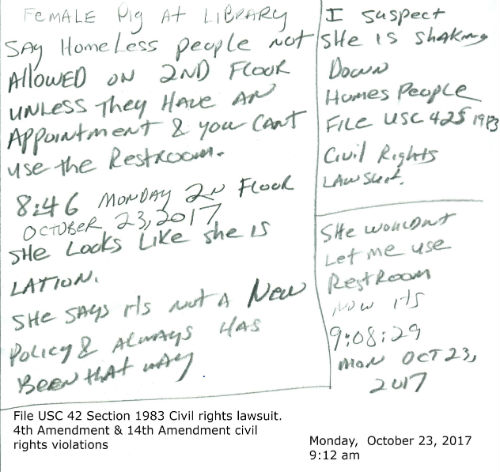 FEMALE Pig At LIBRARY
SAY HomeLess people Not
ALLOWED ON 2ND FLOOR
UNLESS They HAVE AN
APPOINTMENT & you CANT
USE the RestRoom.
8:46 MONDAY 2N FLOOR
OCTOBER 23, 2017
SHE LOOKS LIKE she is
LATION.
SHE SAYS ITS NOT A NEW
POLICY & ALWAYS HAS
BEEN tHAt WAY
I SUSPECT
SHE IS SHAKING
DOWN
HOMES PEOPLE
FILE USC 42S 1983
Civil Rights
LAWSUIT.
SHE WOULDNT
LET ME USE
RESTROOM
NOW ITS
9:08:29
MON OCT 23,
2017
File USC 42 Section 1983 Civil rights lawsuit.
4th Amendment & 14th Amendment civil
rights violations
Monday, October 23, 2017
9:12 am